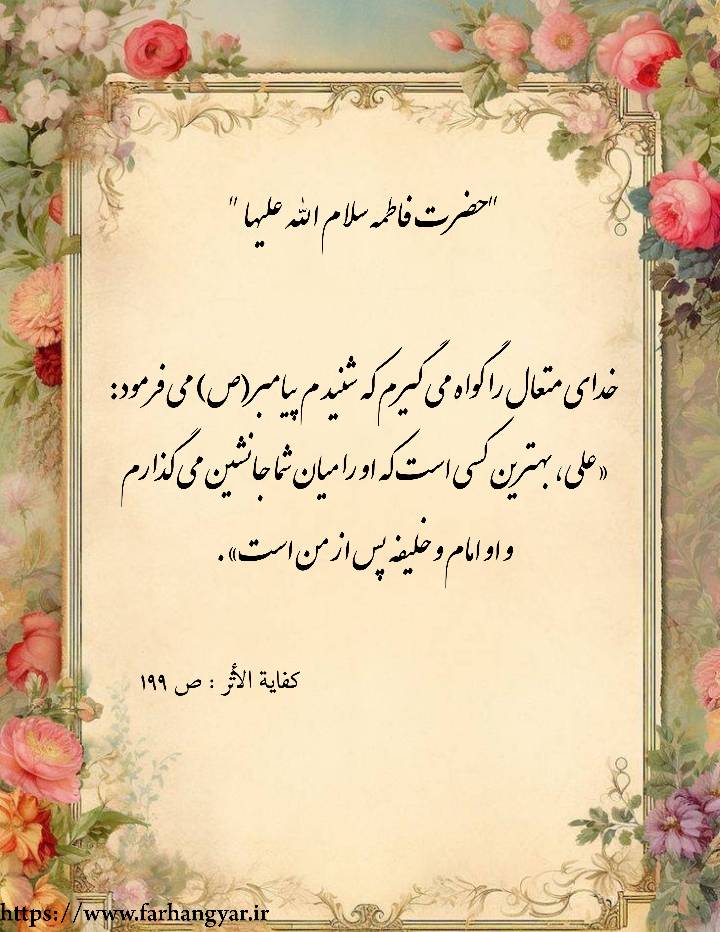 "حضرت فاطمه سلام الله علیها "
خدای متعال را گواه می گیرم که شنیدم پیامبر(ص) می فرمود:
«علی، بهترین کسی است که او را میان شما جانشین می گذارم
و او امام و خلیفه پس از من است».
كفاية الأثر : ص ۱۹۹
https://www.farhangyar.ir